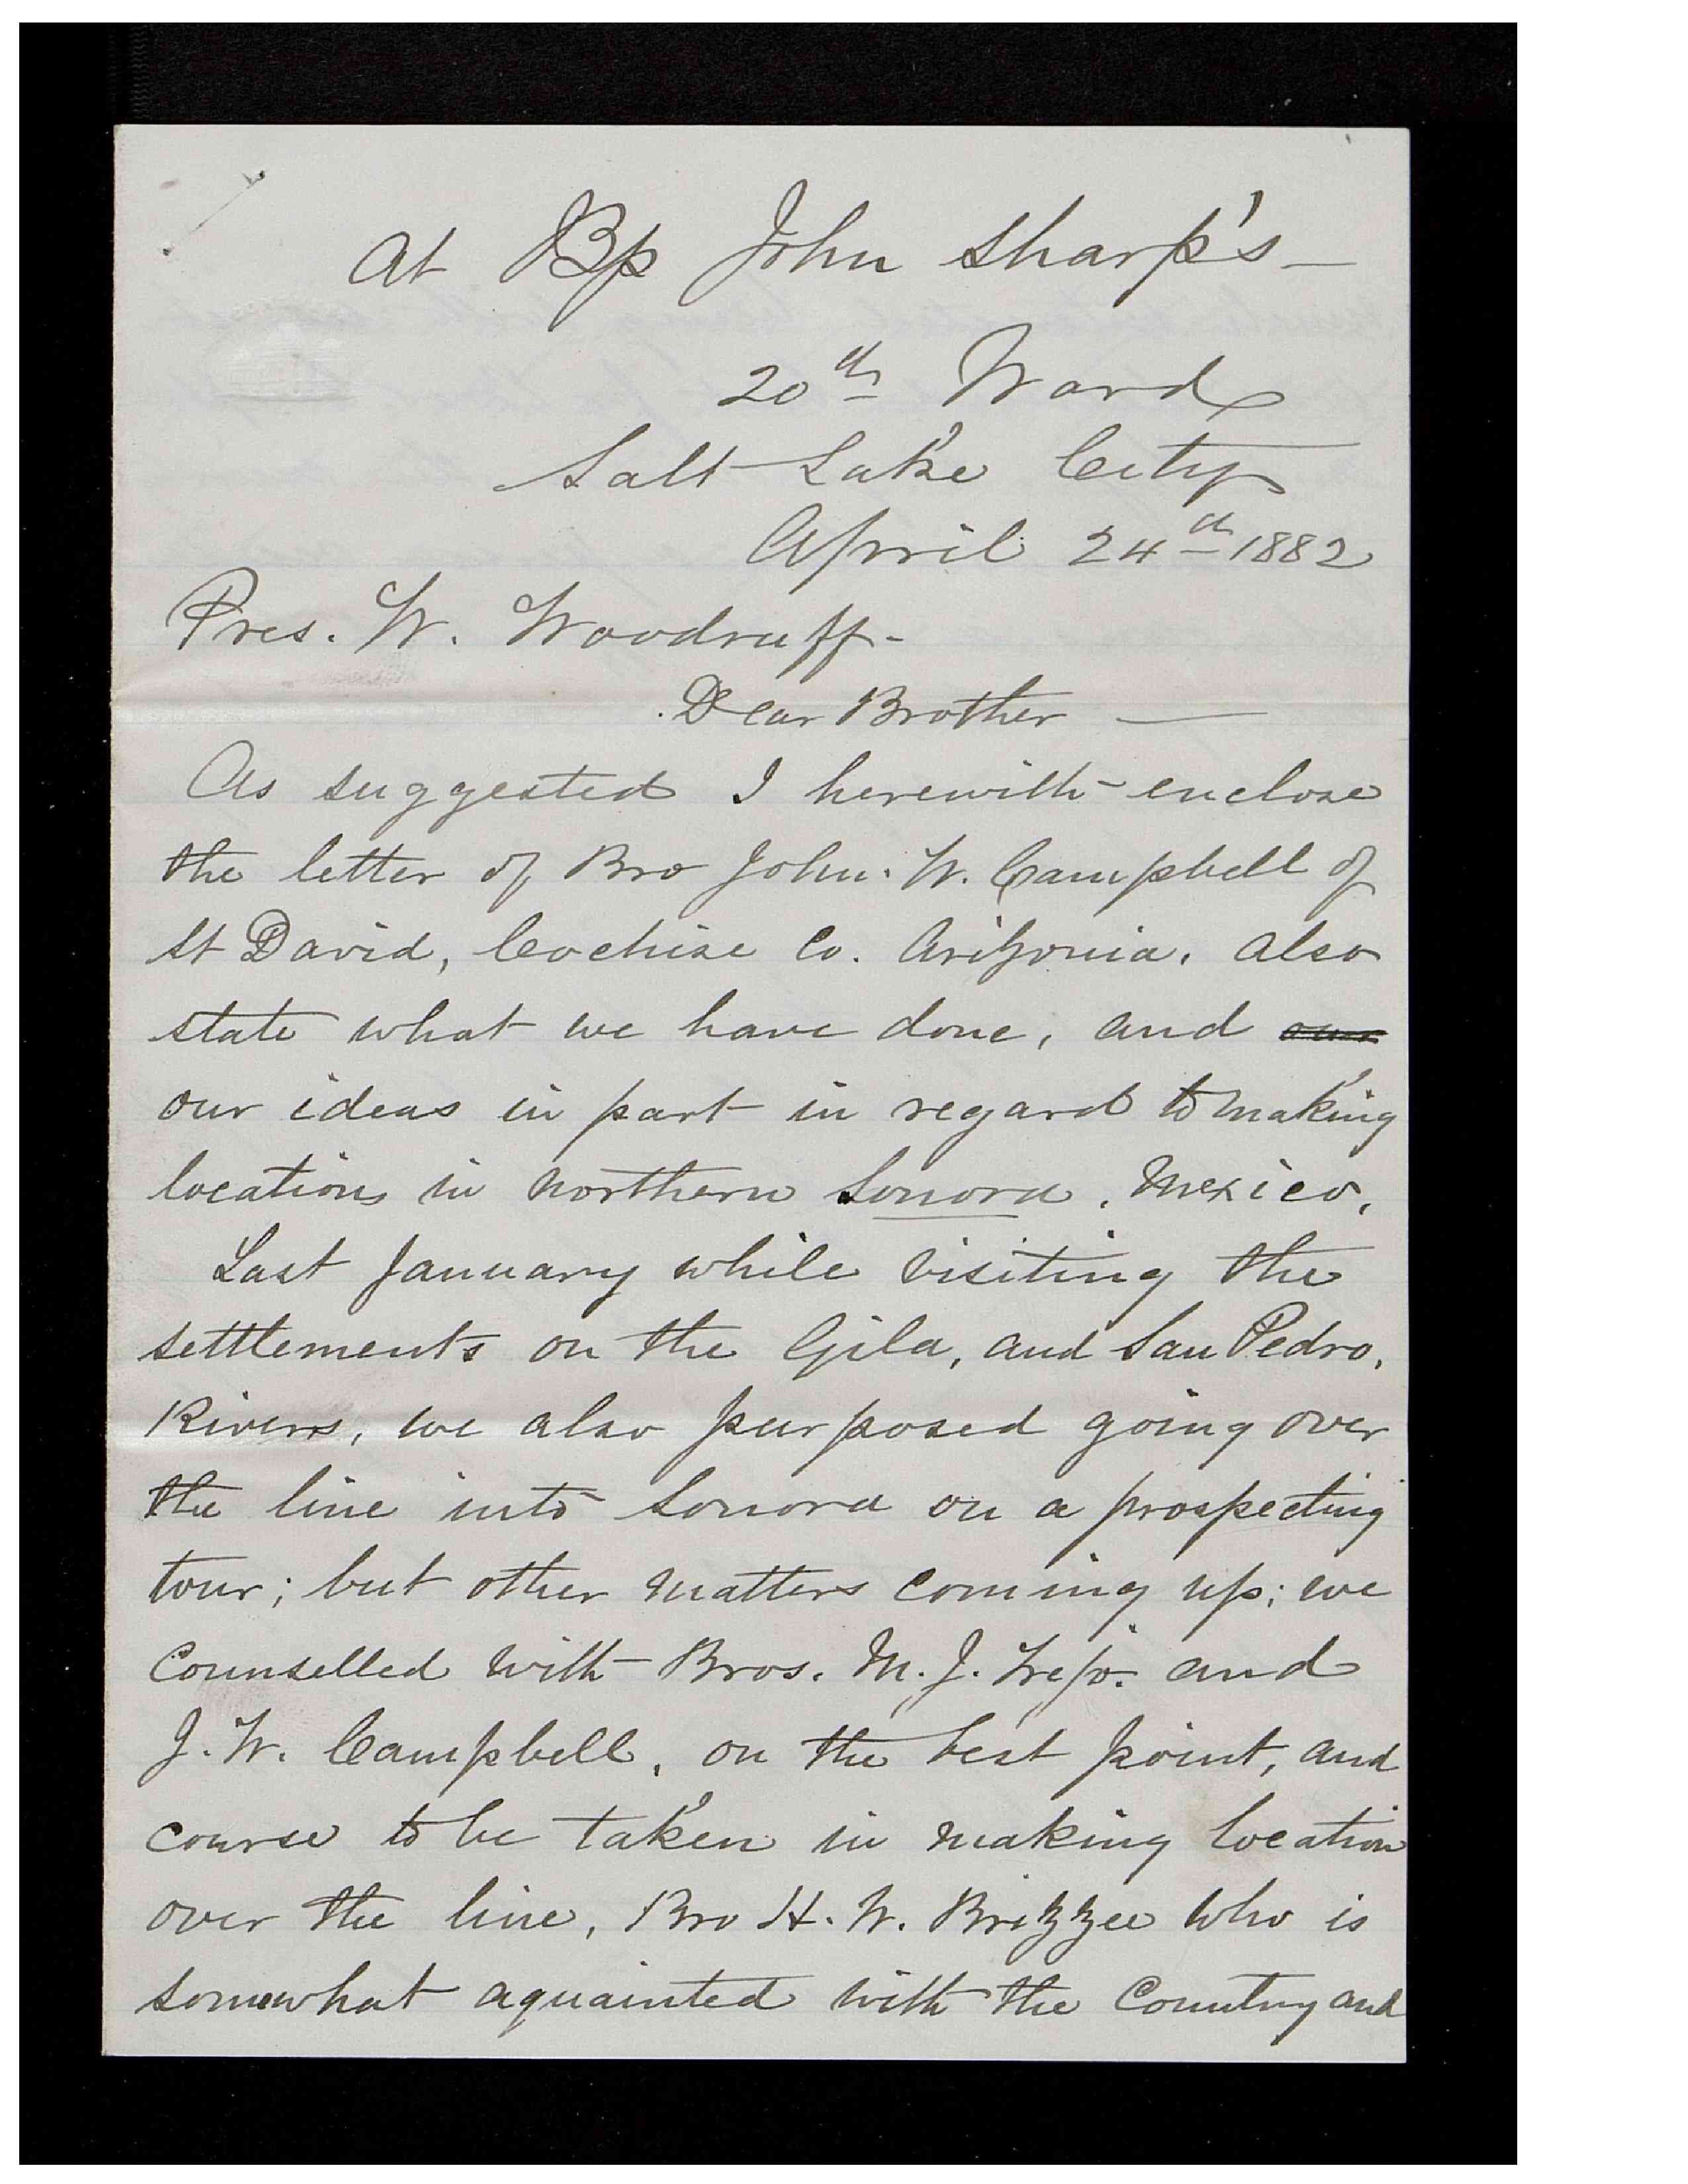 At Bp John Sharp's —
20th Ward
Salt Lake City
April 24th 1882
Pres. W. Woodruff -
Dear Brother —
As suggested I herewith enclose
the letter of Bro John. W. Campbell of
St David, Cochise Co. Arizonia. also
state what we have done, and our
our ideas in part in regard to making
locations in northern Sonora. Mexico.
Last January while visiting the
settlements on the Gila, and San Pedro,
Rivers, we also purposed going over
the line into Sonora on a prospecting
tour; but other matters coming up; we
Counselled with Bros. M. J. Trejo. and
J. W. Campbell, on the best point, and
course to be taken in making location
over the line, Bro H. W. Brizzee who is
somewhat aquainted with the Country and